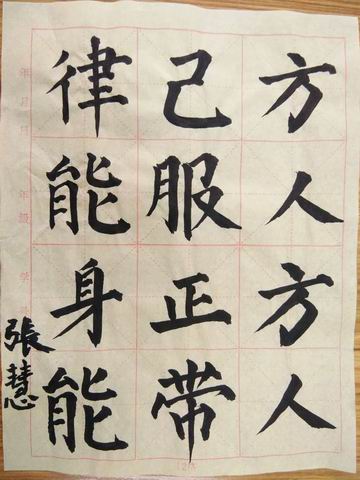 律己方
能服人
身正方
能带人
張慧